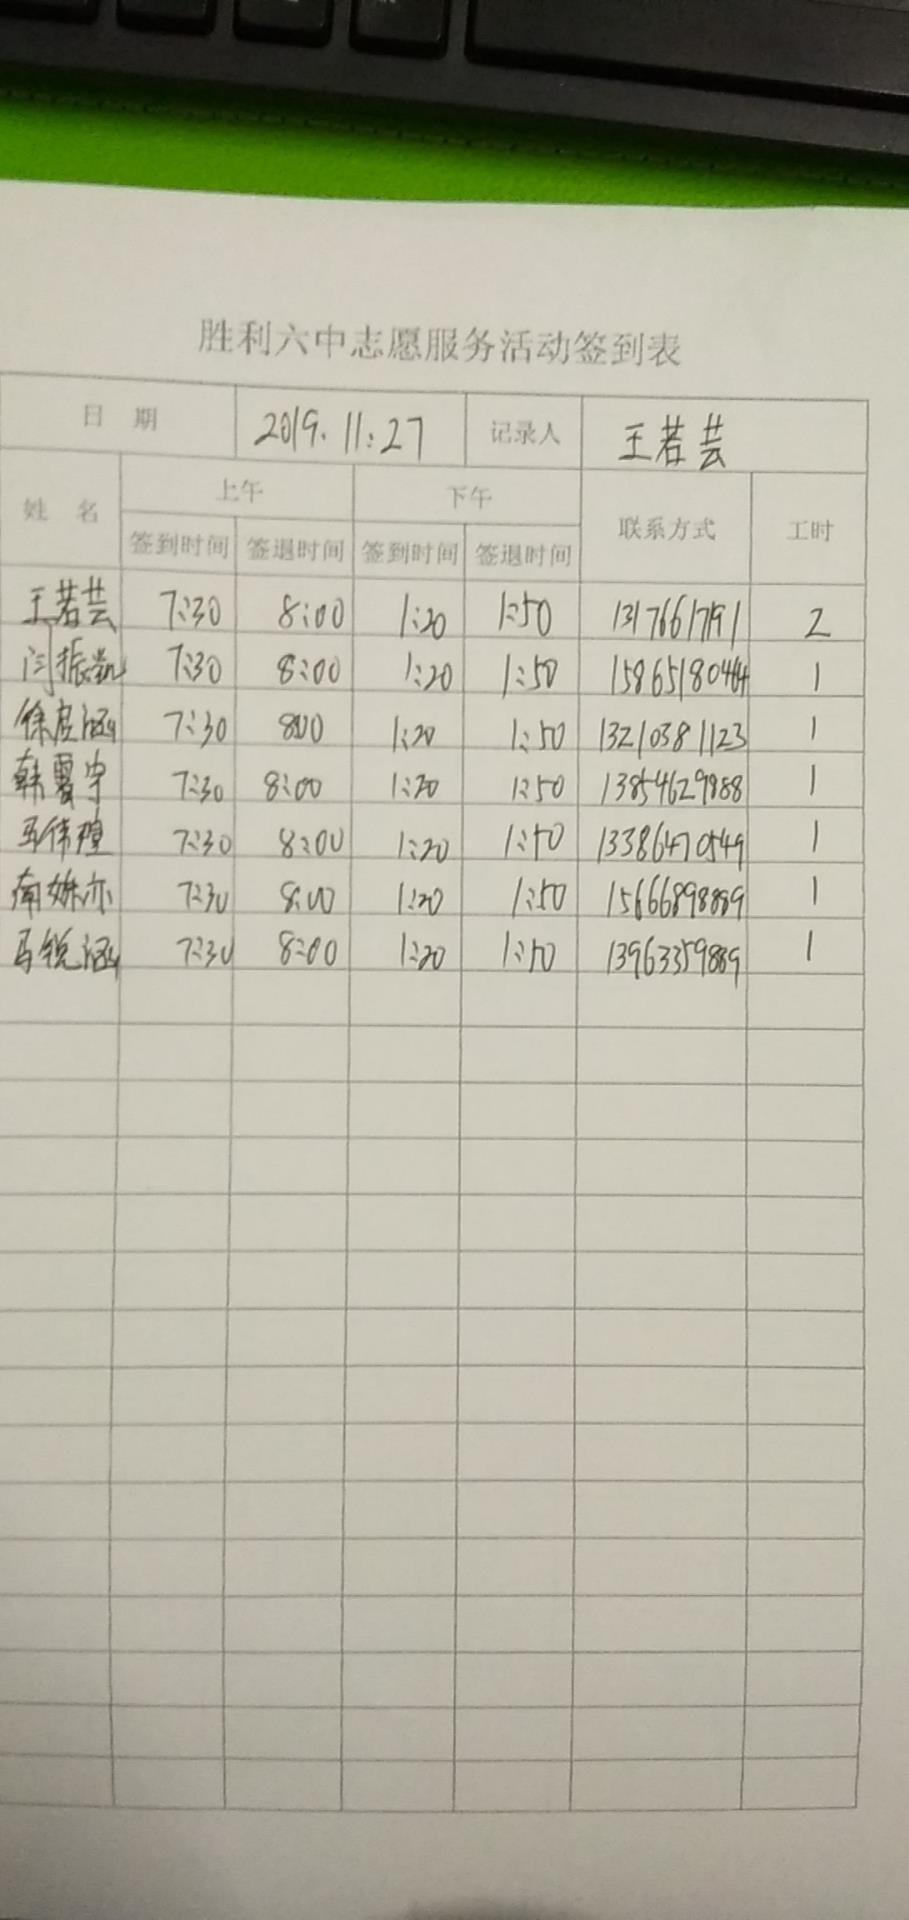 胜利六中志愿服务活动签到表
日 期 2019.11:27 记录人 王若芸
姓 名 上午 下午 联系方式 工时
签到时间 签退时间 签到时间 签退时间
王若芸 7:30 8:00 1:20 1:50 13176617191 2
闫振凯 7:30 8:00 1:20 1:50 15865180464 1
7:30 800 1:20 1:50 13210381123 1
7:30 8:00 1:20 1:50 13854629888 1
马伟瑄 7:30 8:00 1:20 1:50 13386470549 1
7:30 8:00 1:20 1:50 15666898889 1
马锐涵 7:30 8:00 1:20 1:50 13963359889 1